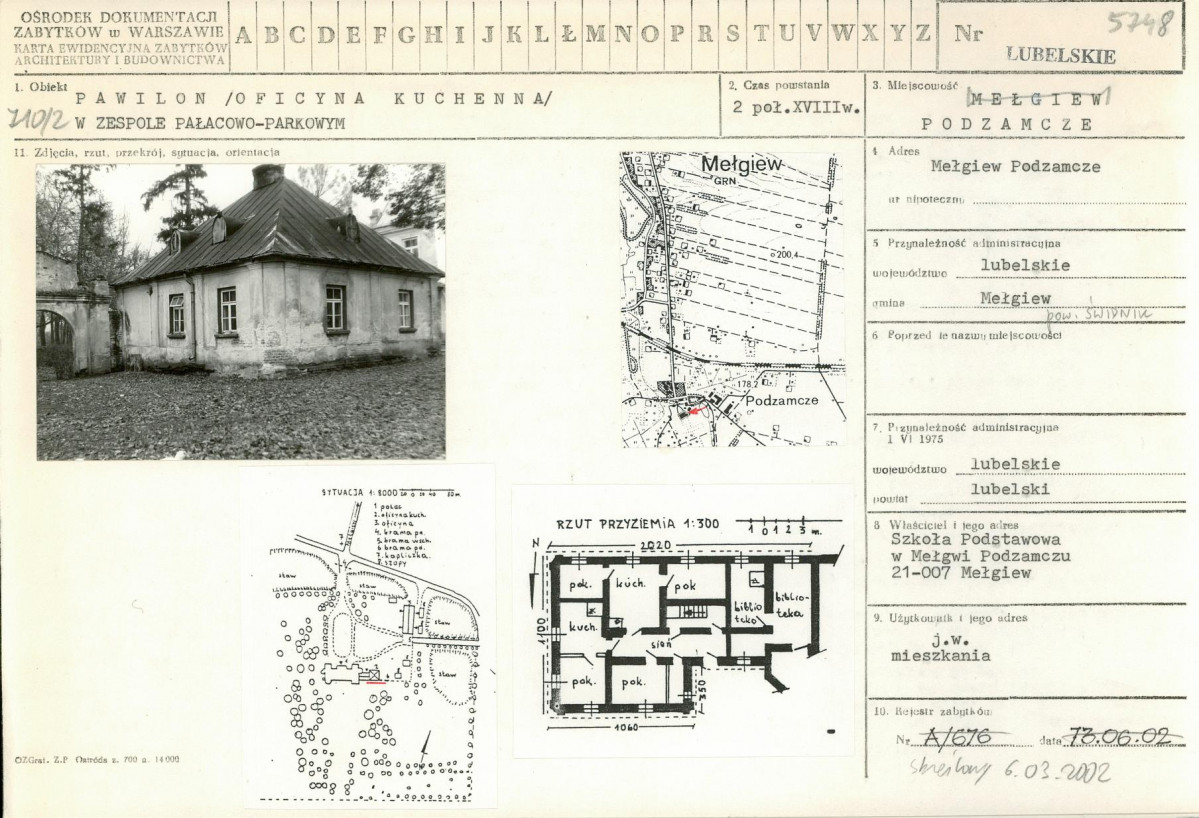 OŚRODEK DOKUMENTACJI
ZABYTKÓW w WARSZAWIE
KARTA EWIDENCYJNA ZABYTKÓW
ARCHITEKTURY I BUDOWNICTWA
A B C D E F G H I J K L Ł M N O P R S T U V W X Y Z
Nr
5748
LUBELSKIE
1. Obiekt
PAWILON /OFICYNA KUCHENNA/
710/2
W ZESPOLE PAŁACOWO-PARKOWYM
2. Czas powstania
2 poł.XVIIIw.
3. Miejscowość
MEŁGIEW
PODZAMCZE
11. Zdjęcia, rzut, przekrój, sytuacja, orientacja
Mełgiew
GRN
200,4
178,2
Podzamcze
4 Adres
Mełgiew Podzamcze
nr hipoteczny
5 Przynależność administracyjna
województwo lubelskie
gmina Mełgiew
pow. ŚWIDNIK
6 Poprzednie nazwy miejscowości
7. Przynależność administracyjna
1 VI 1975
województwo lubelskie
powiat lubelski
8 Właściciel i jego adres
Szkoła Podstawowa
w Mełgwi Podzamczu
21-007 Mełgiew
9. Użytkownik i jego adres
j.w.
mieszkania
10. Rejestr zabytków
Nr A/676 data 13.06.02
skreślony 6.03.2002
SYTUACJA 1:8000 20 0 20 40 80 m.
1 pałac
2. oficyna kuch.
3 oficyna
4. brama pn.
5. brama wsch.
6 brama pd.
7. kapliczka.
8. szopy
staw
staw
staw
staw
RZUT PRZYZIEMIA 1:300
1 0 1 2 3 m.
N
2020
pok.
kuch.
pok
biblio
teka
biblio-
teka
1100
kuch.
sień
pok.
pok.
350
1060
OZGraf. Z.P Ostróda z. 700 n. 14000